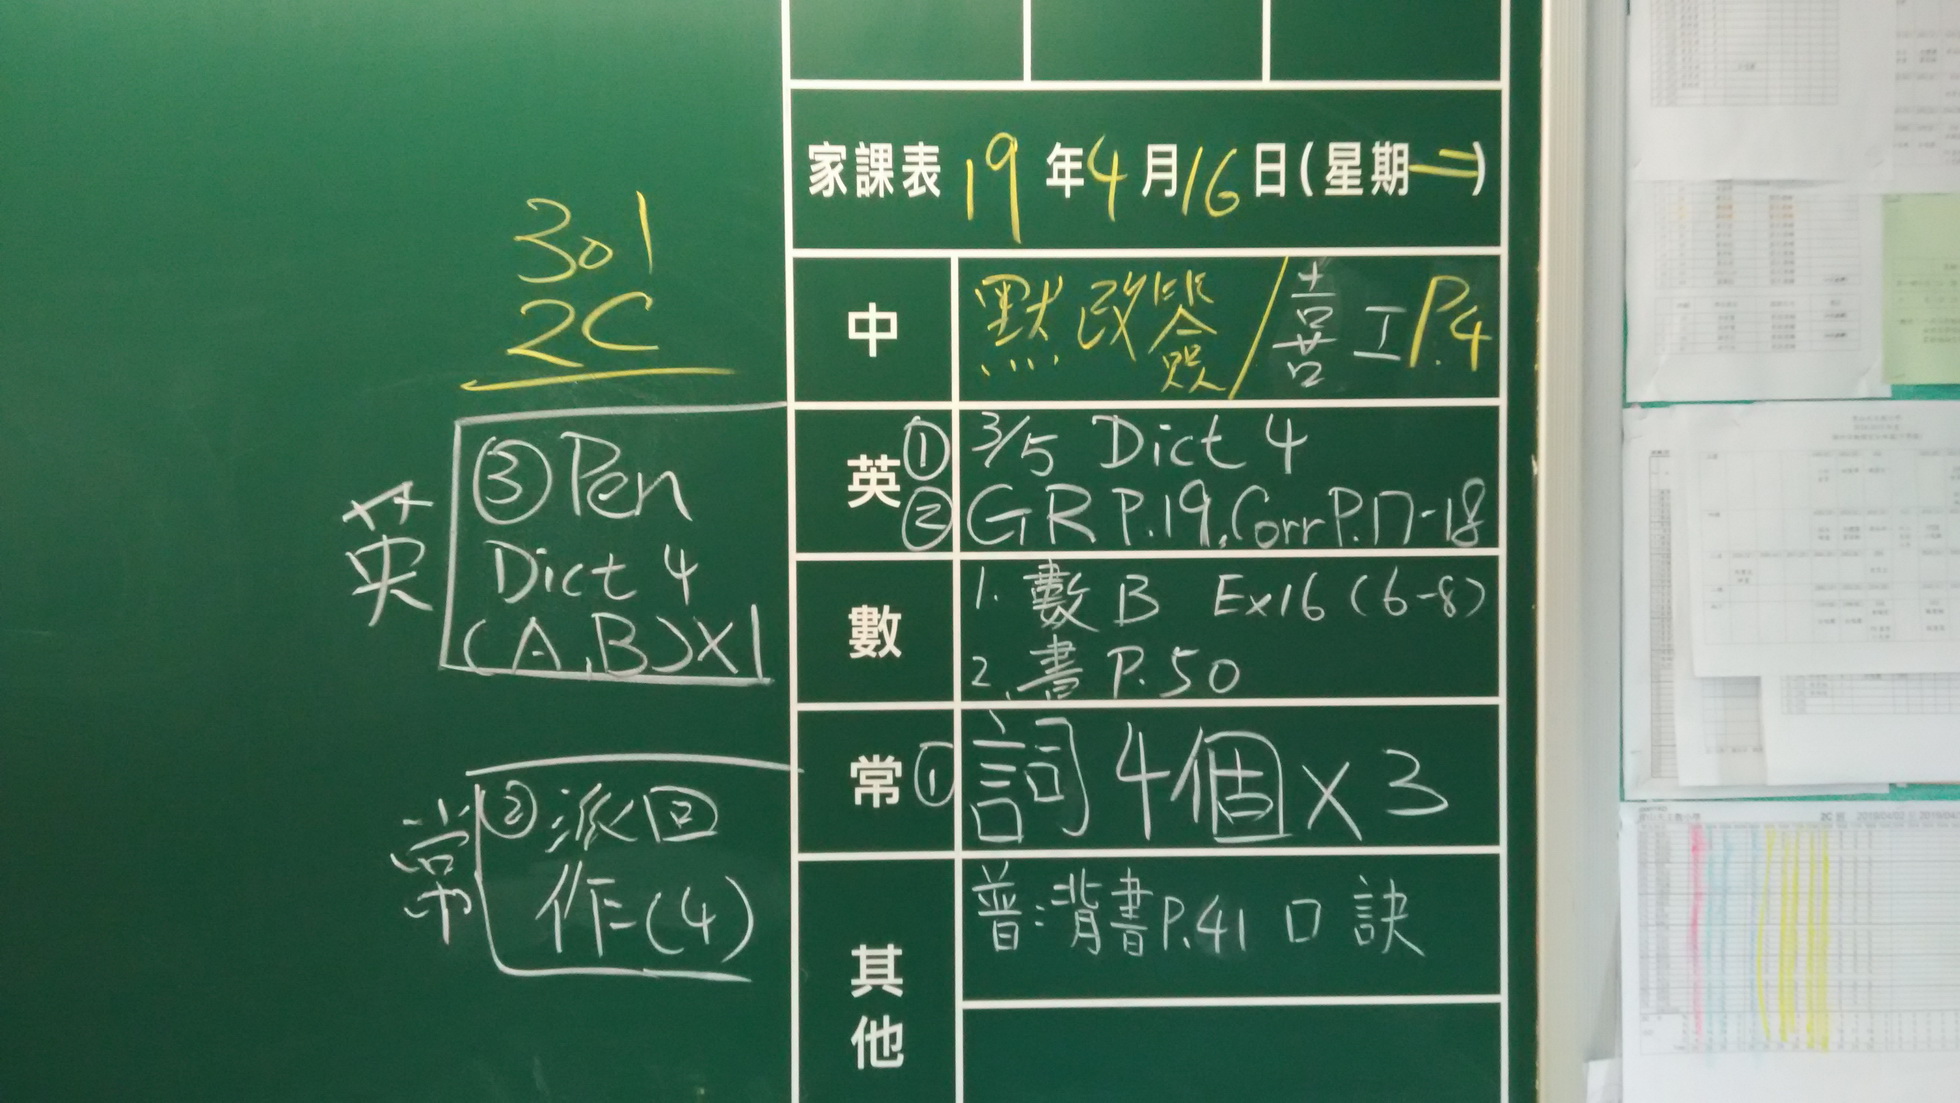 家課表 19 年 4 月 16 日 (星期二)
301
2C
中 默改簽/喜工P.4
英 ① 3/5 Dict 4
② GR P.19, Corr P.17-18
英 ③ Pen
Dict 4
(A, B)×1
數 1. 數B Ex16 (6-8)
2. 書 P.50
常 ① 詞4個×3
常 ② 派回
作(4)
其他 普:背書P.41 口訣
2C 班